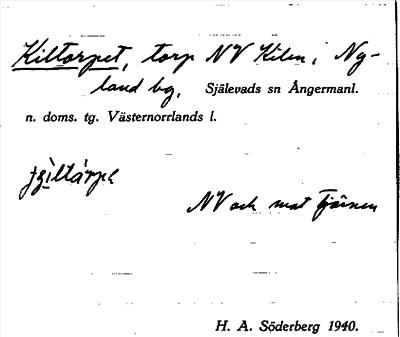 Kiltorpet, torp NV Kilen i Ny-
land by, Själevads sn Ångermanl.
n. doms. tg. Västernorrlands l.
NV och mot Tjärnen
H. A. Söderberg 1940.